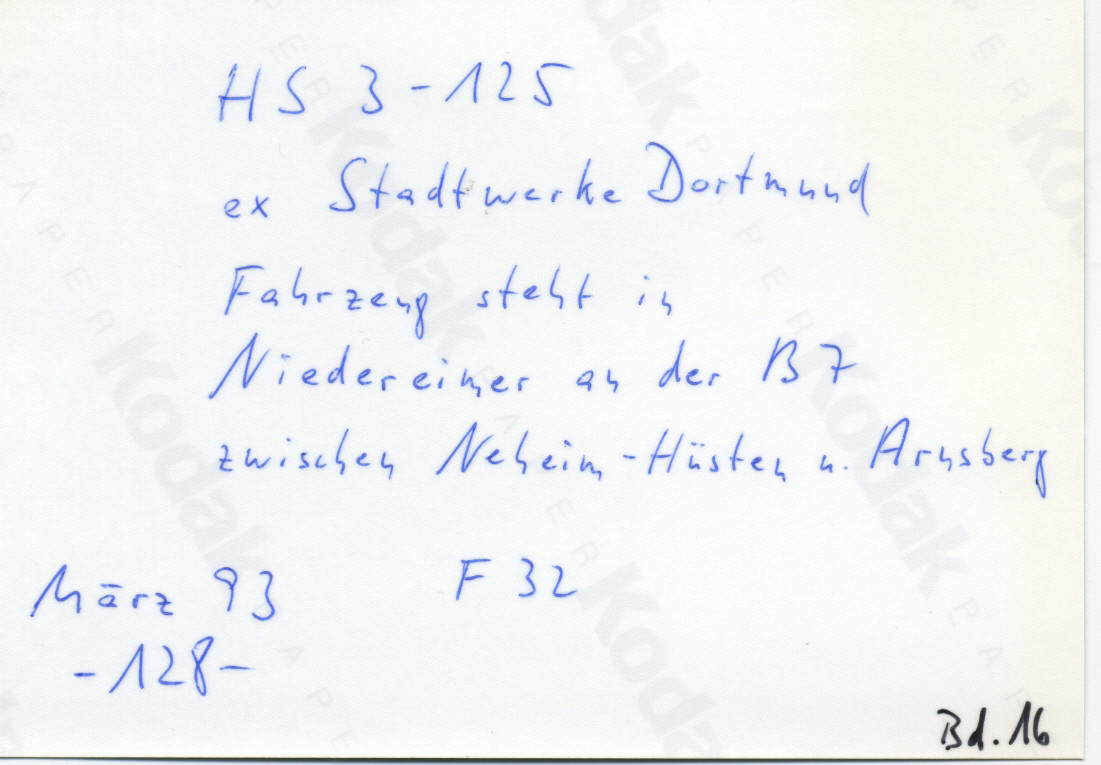 HS 3-125
ex Stadtwerke Dortmund
Fahrzeug steht in
Niedereimer an der B7
zwischen Neheim-Hüsten u. Arnsberg
März 93 F 32
-128-
Bd. 16